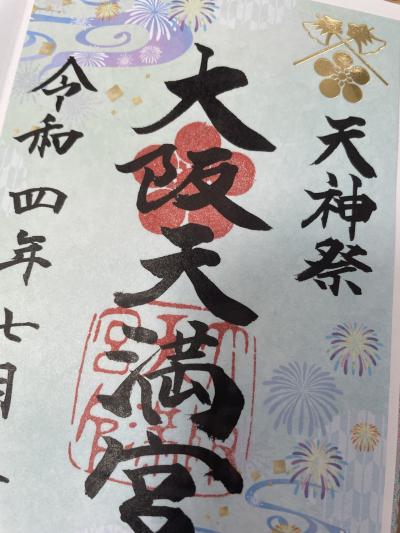 天神祭
大阪天満宮
令和四年七月